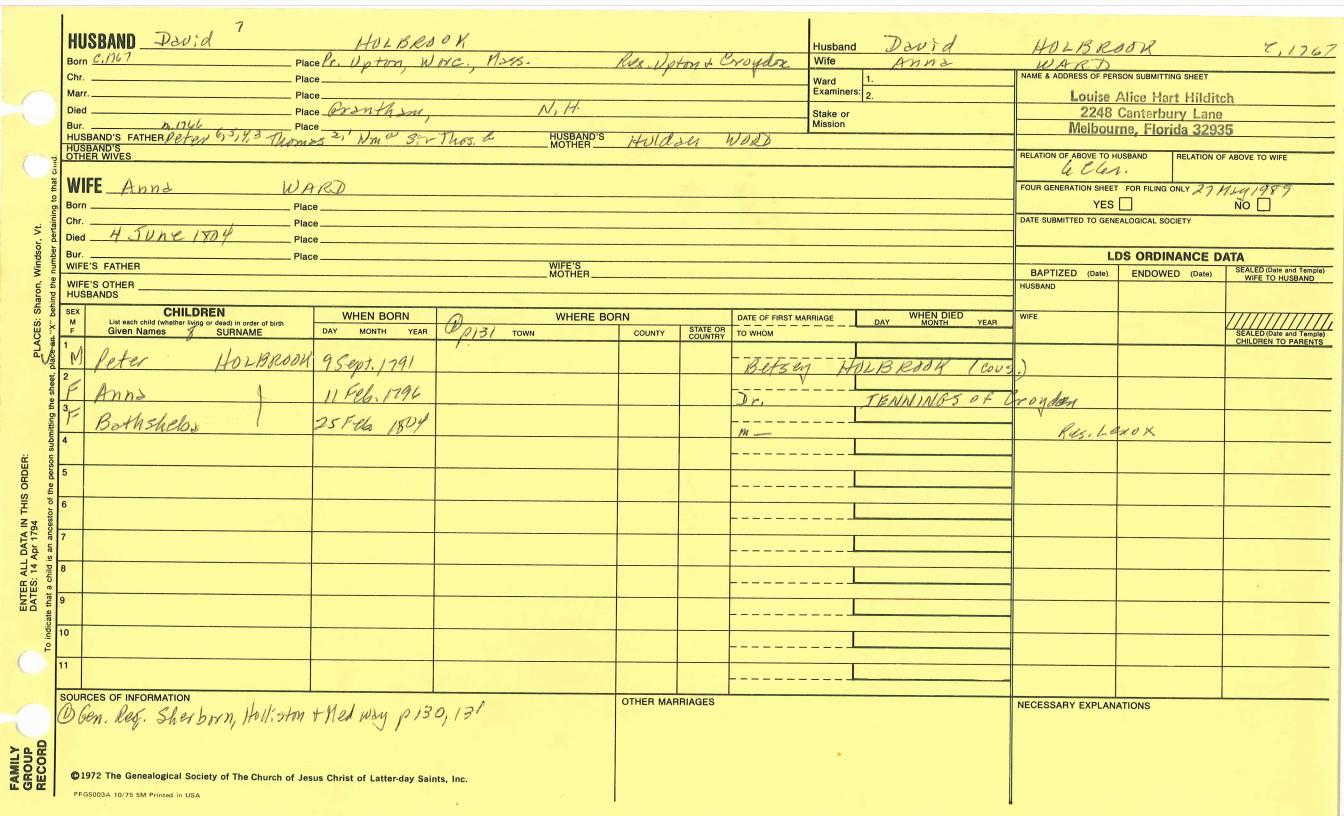 HUSBAND David 7 HOLBROOK
Born c.1767 Place Pr. Upton, Worc., Mass. Res. Upton & Croydon
Chr. Place
Marr. Place
Died Place Grantham, N.H.
Bur. Place
m.1766
HUSBAND'S FATHER Peter 6,5,4,3 Thomas 2,1 Wm HUSBAND'S MOTHER Huldah WARD
HUSBAND'S OTHER WIVES
WIFE Anna WARD
Born Place
Chr. Place
Died 4 June 1804 Place
Bur. Place
WIFE'S FATHER WIFE'S MOTHER
WIFE'S OTHER HUSBANDS
Husband David HOLBROOK c.1767
Wife Anna WARD
Ward Examiners: 1.
2.
Stake or Mission
NAME & ADDRESS OF PERSON SUBMITTING SHEET
Louise Alice Hart Hilditch
2248 Canterbury Lane
Melbourne, Florida 32935
RELATION OF ABOVE TO HUSBAND RELATION OF ABOVE TO WIFE
FOUR GENERATION SHEET FOR FILING ONLY 27 May 1989
YES NO
DATE SUBMITTED TO GENEALOGICAL SOCIETY
LDS ORDINANCE DATA
BAPTIZED (Date) ENDOWED (Date) SEALED (Date and Temple) WIFE TO HUSBAND
HUSBAND
WIFE
SEALED (Date and Temple) CHILDREN TO PARENTS
SEX M F
CHILDREN
List each child (whether living or dead) in order of birth
Given Names 8 SURNAME
WHEN BORN
DAY MONTH YEAR
WHERE BORN
① p131 TOWN COUNTY STATE OR COUNTRY
DATE OF FIRST MARRIAGE
TO WHOM
WHEN DIED
DAY MONTH YEAR
1 M Peter HOLBROOK 9 Sept. 1791 Betsey HOLBROOK (cous.)
2 F Anna 11 Feb. 1796 Dr. JENNINGS of Croydon
3 F Bathsheba 25 Feb 1804 m — Res. Lenox
4
5
6
7
8
9
10
11
SOURCES OF INFORMATION
① Gen. Reg. Sherborn, Holliston + Medway p 130, 131
OTHER MARRIAGES
NECESSARY EXPLANATIONS
©1972 The Genealogical Society of The Church of Jesus Christ of Latter-day Saints, Inc.
PFGS003A 10/75 5M Printed in USA
FAMILY GROUP RECORD
ENTER ALL DATA IN THIS ORDER:
DATES: 14 Apr 1794
PLACES: Sharon, Windsor, Vt.
To indicate that a child is an ancestor of the person submitting the sheet, place an "X" behind the number pertaining to that child.